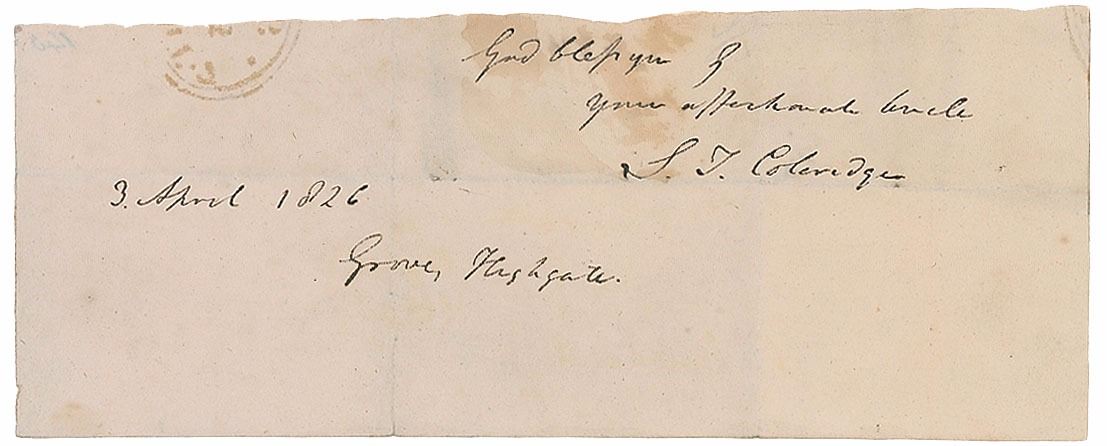 God bless you &
your affectionate Uncle
S. T. Coleridge
3. April 1826
Grove, Highgate.